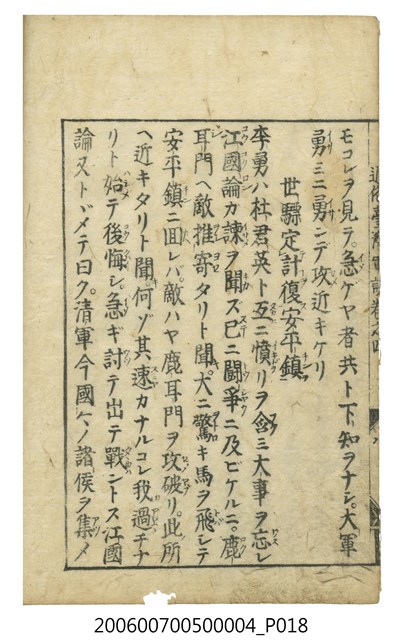 モコレヲ見テ急ゲヤ者共ト下知ヲナシ大軍
勇ミニ勇ンデ攻近キケリ
世驃定計復安平鎮
李勇ハ杜君英ト互ニ憤リヲ含ミ大事ヲ忘レ
江國論カ諫ヲ聞ズ已ニ闘爭ニ及ビケルニ鹿
耳門ヘ敵推寄タリト聞大ニ驚キ馬ヲ飛シテ
安平鎮ニ回レバ敵ハヤ鹿耳門ヲ攻破リ此所
ヘ近キタリト聞何ゾ其速カナルコレ我過チナ
リト始テ後悔シ急ギ討テ出テ戰ントス江國
論又トヾメテ曰ク清軍今國々ノ諸侯ヲ集メ
200600700500004_P018